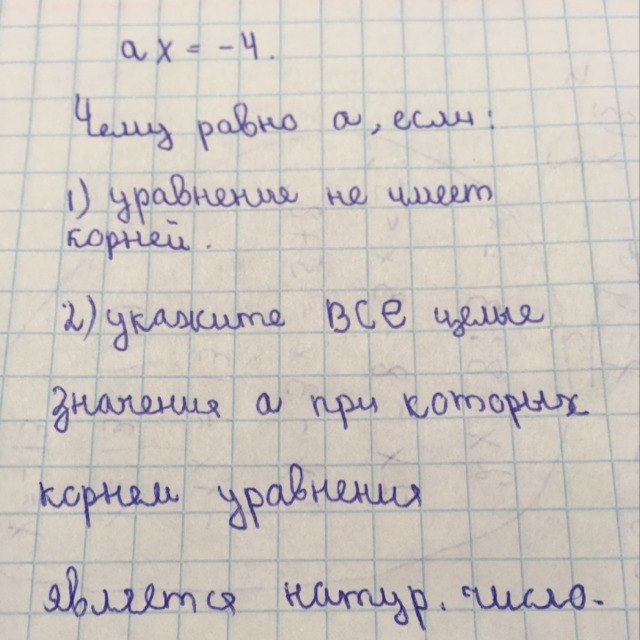 ax = -4.
Чему равно a, если:
1) уравнение не имеет
корней.
2) укажите ВСЕ целые
значения a при которых
корнем уравнения
является натур. число.